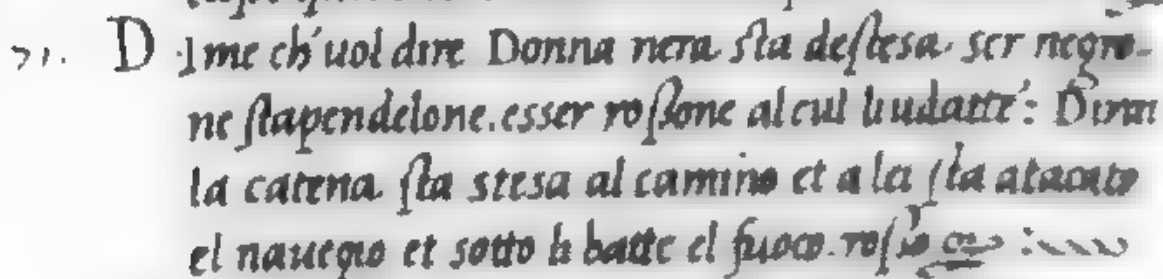 71. D Ime ch' uol dire Donna nera sta destesa. ser negro-
ne stapendelone. esser rossone al cul li udatte: Dirai
la catena sta stesa al camino et a lei sta atacato
el nauegio et sotto li batte el fuoco. rosso